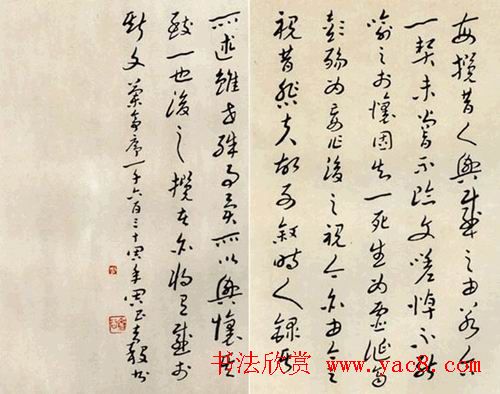 每攬昔人興感之由若合
一契未嘗不臨文嗟悼不能
喻之於懷固知一死生為虛誕齊
彭殤為妄作後之視今亦由今之
視昔悲夫故列敘時人錄其
所述雖世殊事異所以興懷其
致一也後之攬者亦將有感於
斯文 蘭亭序一千六百三十周年 書
书法欣赏 www.yac8.com